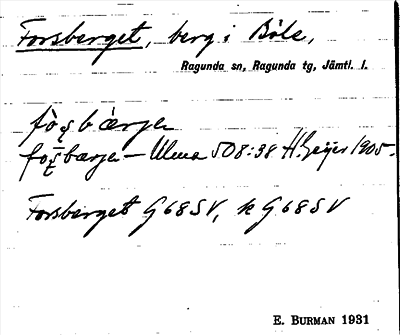 Forsberget, berg i Böle,
Ragunda sn, Ragunda tg, Jämtl. l.
508:38 H. Geijer 1905.
Forsberget G68SV, k G68SV
E. BURMAN 1931